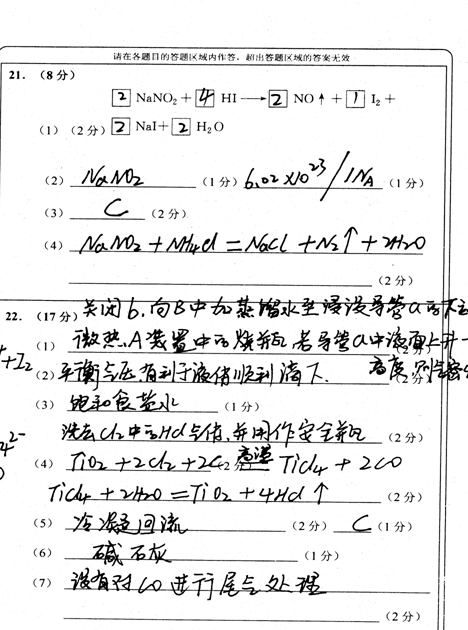 请在各题目的答题区域内作答，超出答题区域的答案无效
21. （8分）
2 NaNO₂ + 4 HI ⟶ 2 NO↑ + 1 I₂ +
（1）（2分） 2 NaI + 2 H₂O
（2） NaNO₂ （1分） 6.02×10²³/1NA （1分）
（3） C （2分）
（4） NaNO₂ + NH₄Cl = NaCl + N₂↑ + 2H₂O
（2分）
22. （17分） 关闭b，向B中加蒸馏水至浸没导管a的下
（1） 微热A装置中的烧瓶 若导管a中液面上升一
+I₂
（2） 平衡气压 有利于液体顺利滴下. 高度，则气密
（3） 饱和食盐水 （1分）
洗去Cl₂中的HCl气体，并用作安全瓶 （2分）
4²⁻
（4） TiO₂ + 2Cl₂ + 2C （2分） 高温 TiCl₄ + 2CO
TiCl₄ + 2H₂O = TiO₂ + 4HCl↑ （2分）
（5） 冷凝回流 （2分） C （1分）
（6） 碱石灰 （1分）
（7） 没有对CO进行尾气处理
（2分）